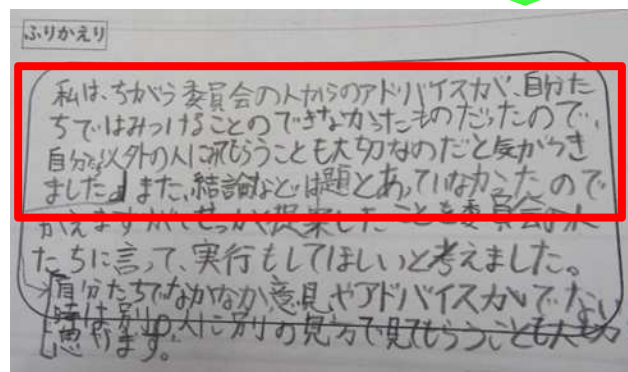 ふりかえり
私は、ちがう委員会の人からのアドバイスが、自分た
ちではみつけることのできなかったものだったので、
自分たち以外の人に見てもらうことも大切なのだと気がつき
ました。また、結論などは題とあっていなかったので
かえますが、せっかく提案したことを委員会の人
たちに言って、実行もしてほしいと考えました。
自分たちでなかなか意見やアドバイスがでない
時は別の人に別の見方で見てもらうことも大切
思います。